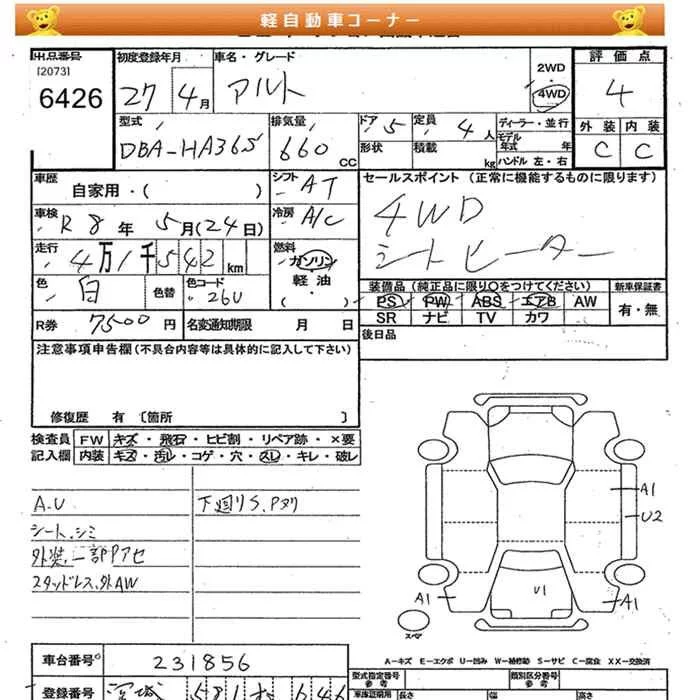 軽自動車コーナー
出品番号 初度登録年月 車名・グレード 2WD 評価点
[2073]
6426 27 4月 アルト 4WD 4
型式 排気量 ドア 5 定員 4人 ディーラー・並行 外装 内装
DBA-HA36S 660cc 形状 積載 kg モデル年式 年 C C
ハンドル 左・右
車歴 シフト AT セールスポイント (正常に機能するものに限ります)
自家用・( ) 4WD
車検 R8年5月(24日) 冷房 A/C シートヒーター
走行 4万1千542km 燃料 ガソリン・軽油・( )
色 白 色替 色コード 26U 装備品 (純正品に限り〇をつけてください) 新車保証書
PS PW ABS エアB AW 有・無
SR ナビ TV カワ
R券 7500円 名変通知期限 月 日 後日品
注意事項申告欄(不具合内容等は具体的に記入して下さい)
修復歴 有 〔箇所 〕
検査員記入欄 FW キズ・飛石・ヒビ割・リペア跡・×要
内装 キズ・汚レ・コゲ・穴・スレ・キレ・破レ
A.U 下廻りS.Pヌリ
シート.シミ
外装.一部Pアセ
スタッドレス.外AW
A1
U2
U1
A1 A1
スペア
A-キズ E-エクボ U-凹み W-補修跡 S-サビ C-腐食 XX-交換済
車台番号 231856
型式指定番号 参考 類別区分番号 参考
登録番号 宮城 581
長さ 幅 高さ